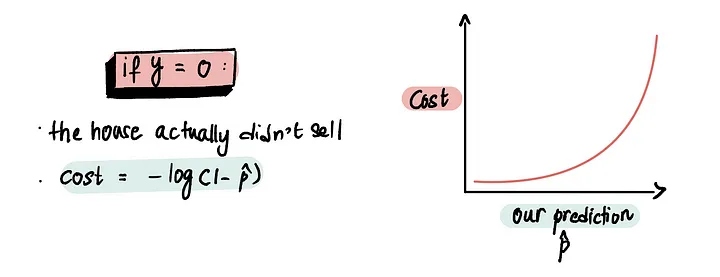 if y = 0 :
· the house actually didn't sell
· cost = - log (1- p̂)
Cost
our prediction
p̂